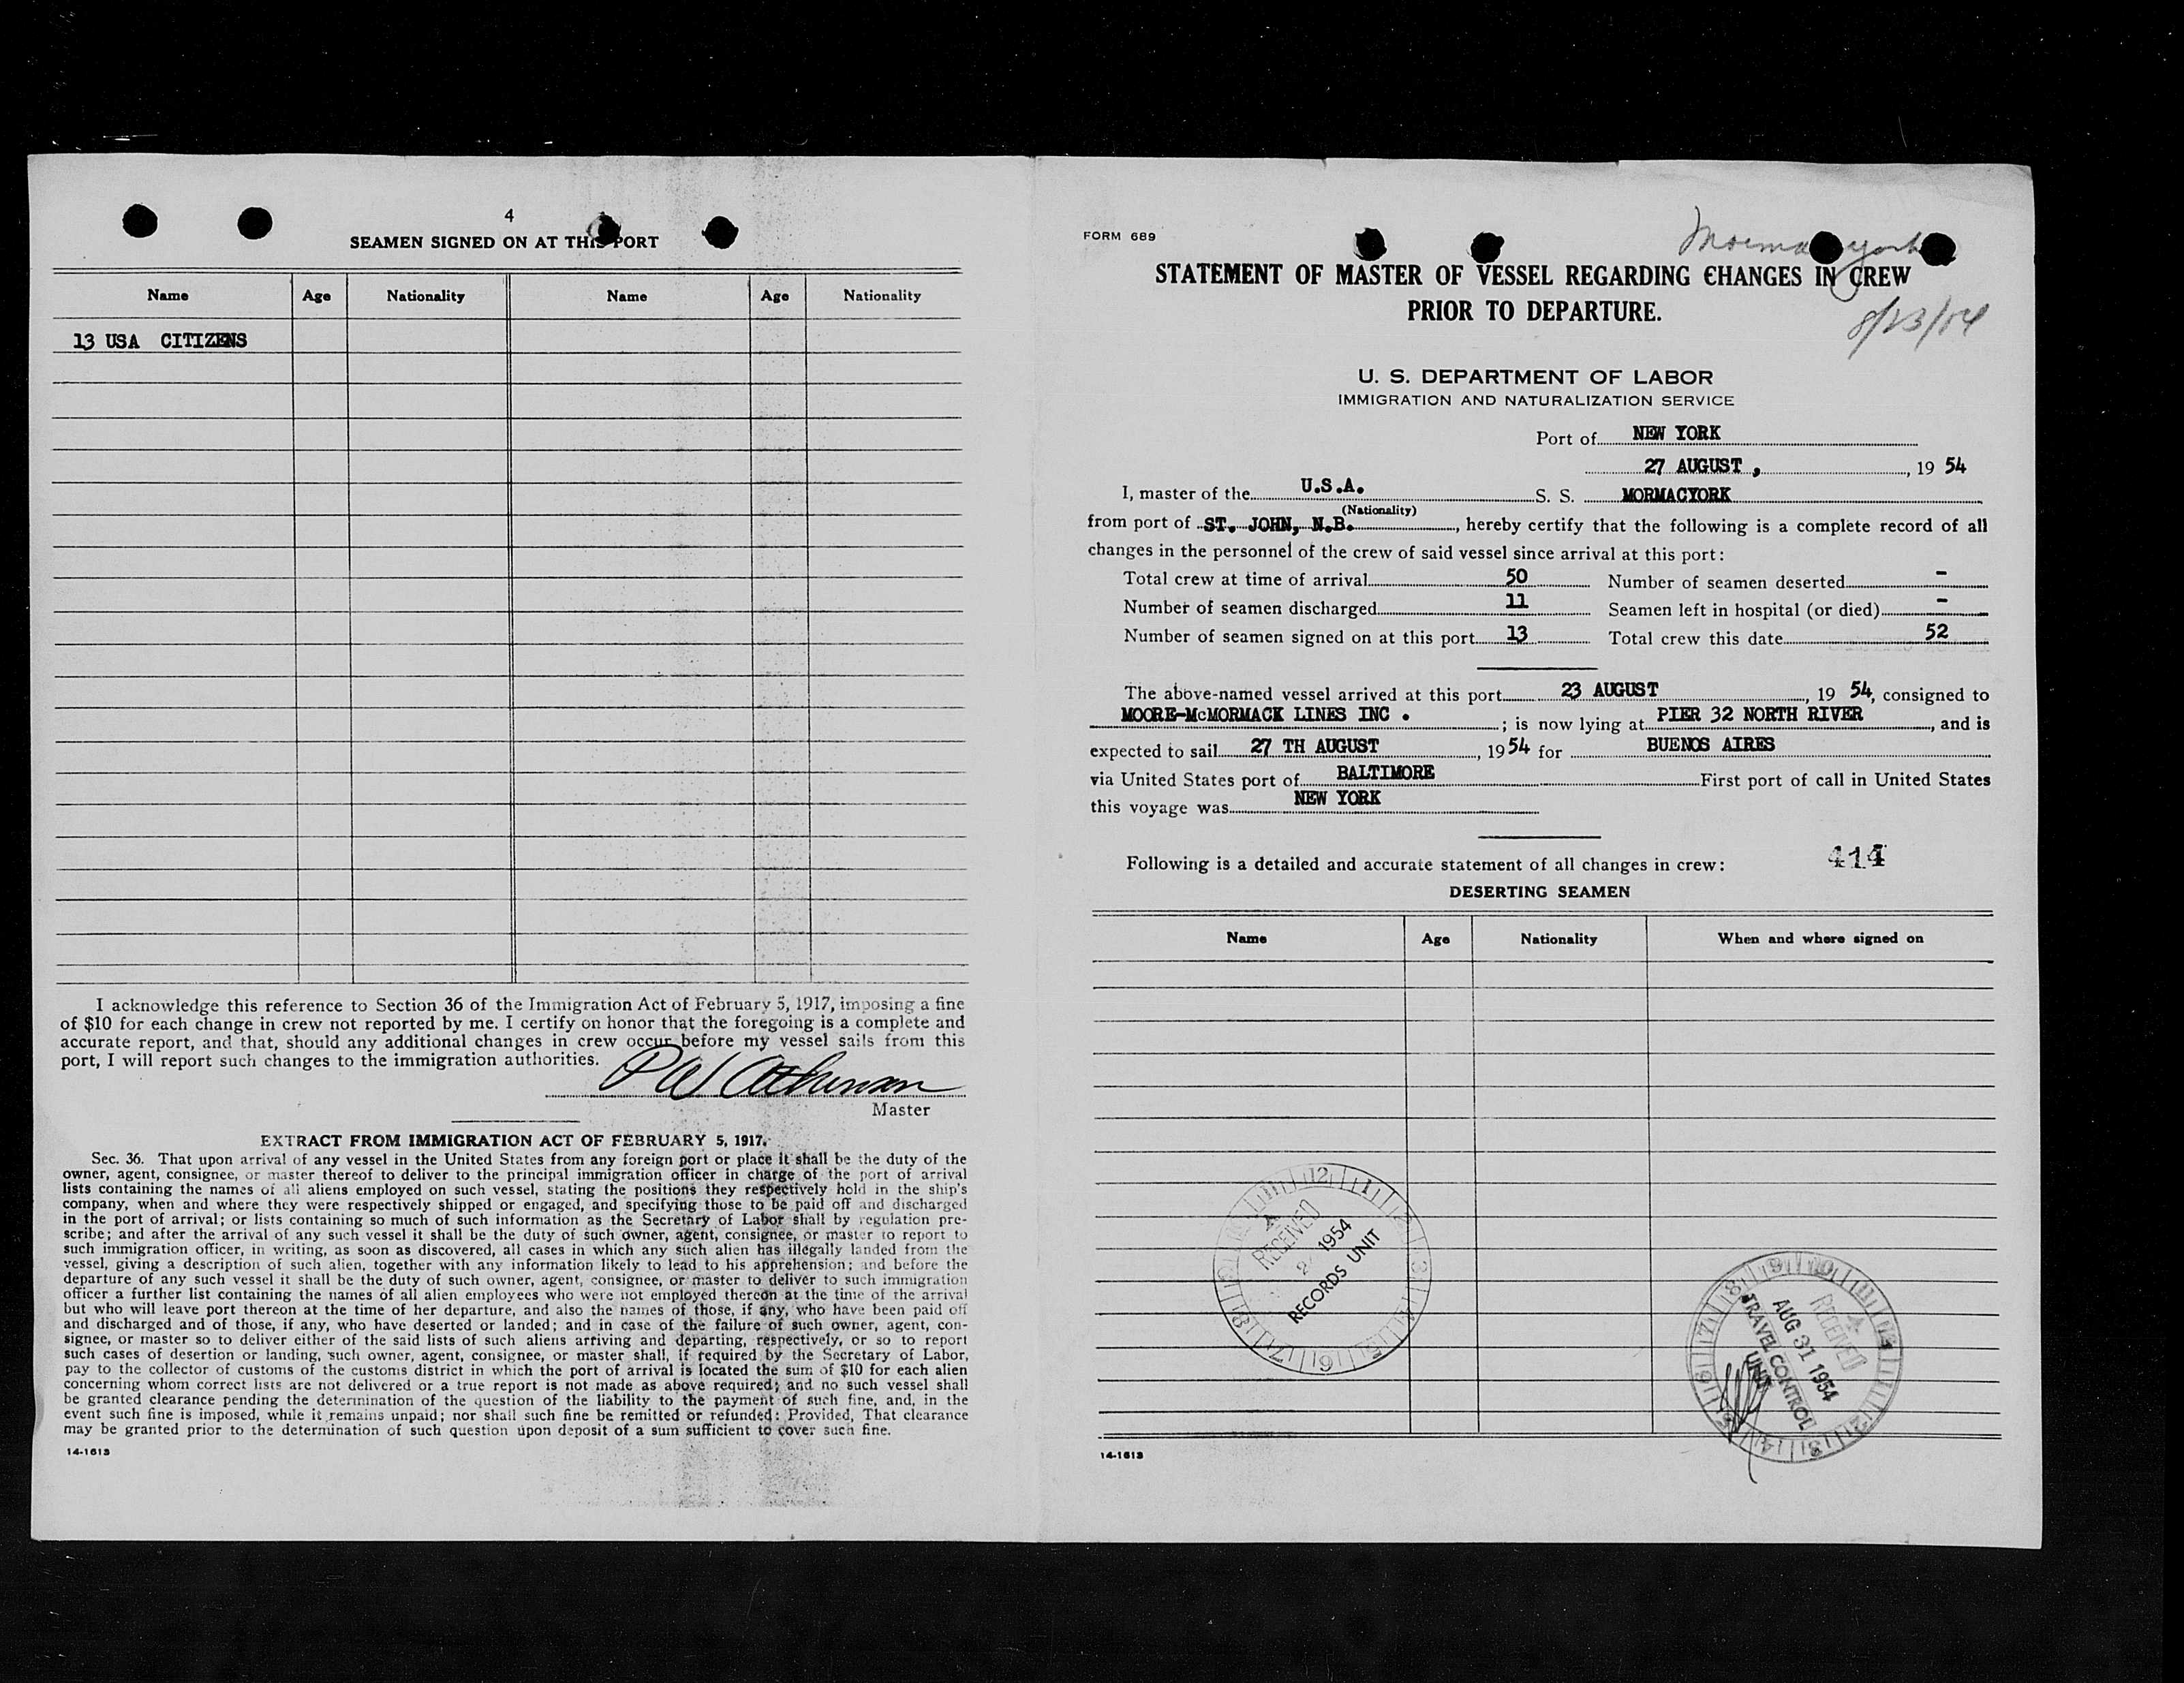 4
SEAMEN SIGNED ON AT THIS PORT
Name Age Nationality Name Age Nationality
13 USA CITIZENS
I acknowledge this reference to Section 36 of the Immigration Act of February 5, 1917, imposing a fine
of $10 for each change in crew not reported by me. I certify on honor that the foregoing is a complete and
accurate report, and that, should any additional changes in crew occur before my vessel sails from this
port, I will report such changes to the immigration authorities.
Master
EXTRACT FROM IMMIGRATION ACT OF FEBRUARY 5, 1917.
Sec. 36. That upon arrival of any vessel in the United States from any foreign port or place it shall be the duty of the
owner, agent, consignee, or master thereof to deliver to the principal immigration officer in charge of the port of arrival
lists containing the names of all aliens employed on such vessel, stating the positions they respectively hold in the ship's
company, when and where they were respectively shipped or engaged, and specifying those to be paid off and discharged
in the port of arrival; or lists containing so much of such information as the Secretary of Labor shall by regulation pre-
scribe; and after the arrival of any such vessel it shall be the duty of such owner, agent, consignee, or master to report to
such immigration officer, in writing, as soon as discovered, all cases in which any such alien has illegally landed from the
vessel, giving a description of such alien, together with any information likely to lead to his apprehension; and before the
departure of any such vessel it shall be the duty of such owner, agent, consignee, or master to deliver to such immigration
officer a further list containing the names of all alien employees who were not employed thereon at the time of the arrival
but who will leave port thereon at the time of her departure, and also the names of those, if any, who have been paid off
and discharged and of those, if any, who have deserted or landed; and in case of the failure of such owner, agent, con-
signee, or master so to deliver either of the said lists of such aliens arriving and departing, respectively, or so to report
such cases of desertion or landing, such owner, agent, consignee, or master shall, if required by the Secretary of Labor,
pay to the collector of customs of the customs district in which the port of arrival is located the sum of $10 for each alien
concerning whom correct lists are not delivered or a true report is not made as above required; and no such vessel shall
be granted clearance pending the determination of the question of the liability to the payment of such fine, and, in the
event such fine is imposed, while it remains unpaid; nor shall such fine be remitted or refunded: Provided, That clearance
may be granted prior to the determination of such question upon deposit of a sum sufficient to cover such fine.
14-1613
FORM 689
Mormacyork
STATEMENT OF MASTER OF VESSEL REGARDING CHANGES IN CREW
PRIOR TO DEPARTURE.
8/23/54
U. S. DEPARTMENT OF LABOR
IMMIGRATION AND NATURALIZATION SERVICE
Port of NEW YORK
27 AUGUST , , 19 54
I, master of the U.S.A. S. S. MORMACYORK
(Nationality)
from port of ST. JOHN, N.B. , hereby certify that the following is a complete record of all
changes in the personnel of the crew of said vessel since arrival at this port:
Total crew at time of arrival 50 Number of seamen deserted -
Number of seamen discharged 11 Seamen left in hospital (or died) -
Number of seamen signed on at this port 13 Total crew this date 52
The above-named vessel arrived at this port 23 AUGUST , 19 54, consigned to
MOORE-McMORMACK LINES INC . ; is now lying at PIER 32 NORTH RIVER , and is
expected to sail 27 TH AUGUST , 19 54 for BUENOS AIRES
via United States port of BALTIMORE First port of call in United States
this voyage was NEW YORK
Following is a detailed and accurate statement of all changes in crew:
414
DESERTING SEAMEN
Name Age Nationality When and where signed on
RECEIVED
1954
RECORDS UNIT
RECEIVED
AUG 31 1954
TRAVEL CONTROL
UNIT
14-1613